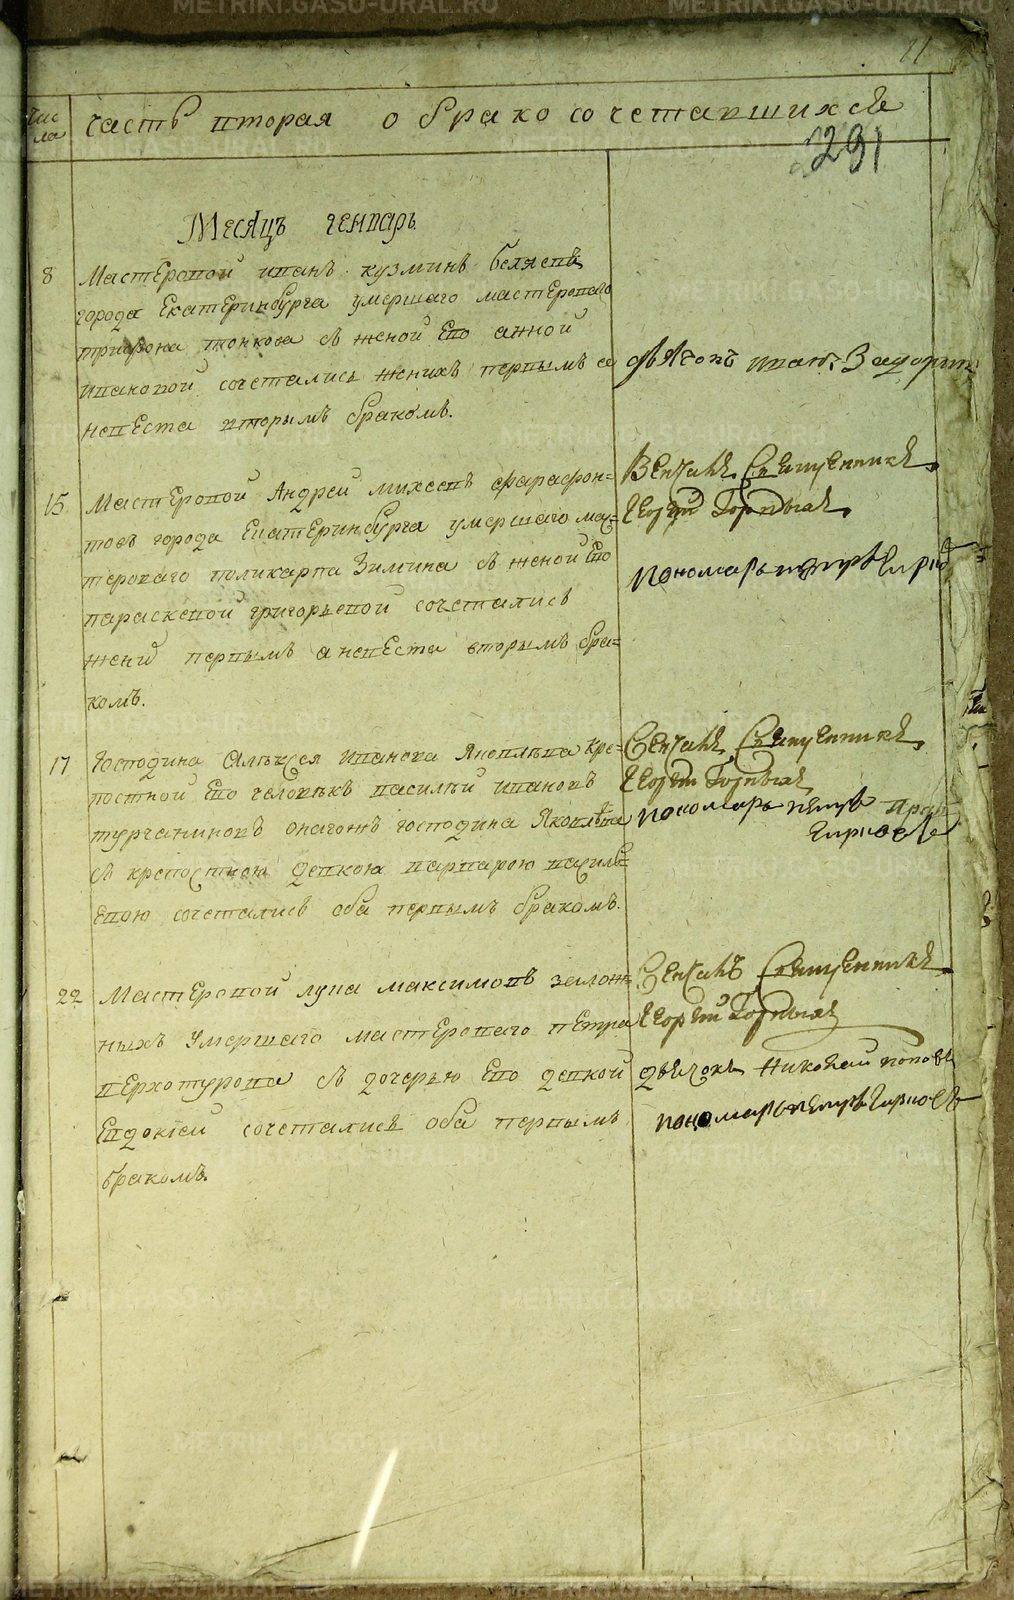 11
Чис
ла
Часть вторая о бракосочетавшихся
291
Месяцъ генварь
8 Мастеровой иванъ кузминъ беляевъ
города Екатеринбурга умершаго мастероваго
трифона тонкова съ женой Ево анной
ивановой сочетались женихъ первымъ а
невеста вторымъ бракомъ.
дьячокъ иванъ
15 Мастеровой Андреи михеевъ фарафон=
товъ города Екатеринбурга умершаго мас=
тероваго поликарпа Зимина съ женой Ево
параскевой григорьевой сочетались
жени первымъ а невеста вторымъ бра=
комъ.
Венчалъ Священникъ
Георгий
пономарь петръ
17 Господина Алѣксея Иванова Яковлева кре=
постной Ево человѣкъ василѣй ивановъ
турчаниновъ онагожъ господина Яковлѣва
съ крепостною девкою варварою василь=
Евою сочетались оба первымъ бракомъ.
Венчалъ Священникъ
Георгий
пономарь петръ
22 Мастеровой лука максимовъ залож=
ныхъ Умершаго мастероваго петра
верхотурова съ дочерью Ево девкой
Евдокіей сочетались оба первымъ
бракомъ.
Венчалъ Священникъ
Георгий
дьячокъ Николай поповъ
пономарь петръ